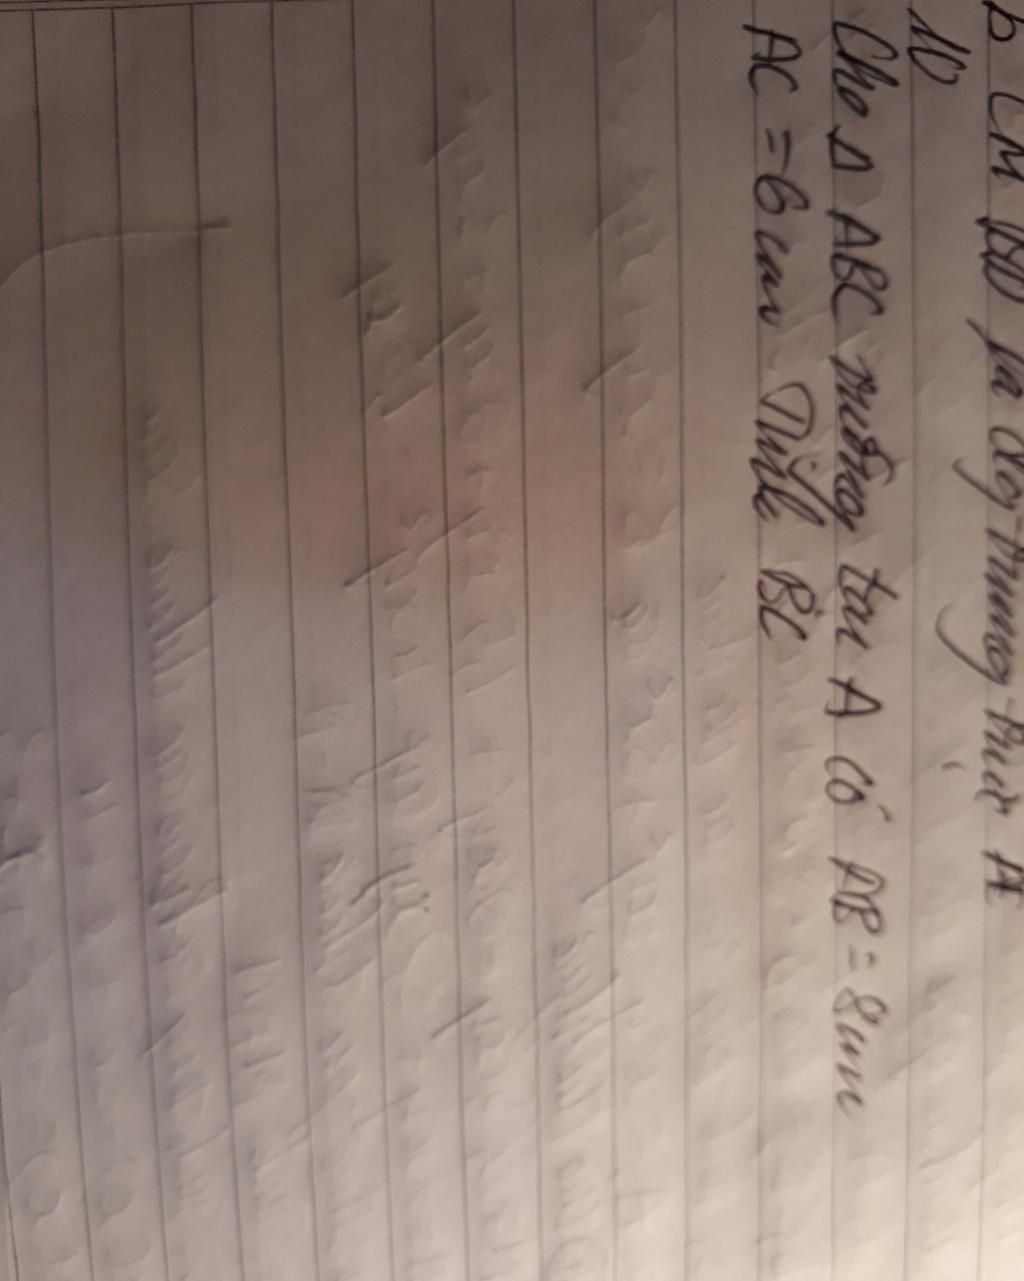 b CM BD là đg trung trực AE
10
Cho Δ ABC vuông tại A có AB = 8cm
AC = 6cm Tính BC